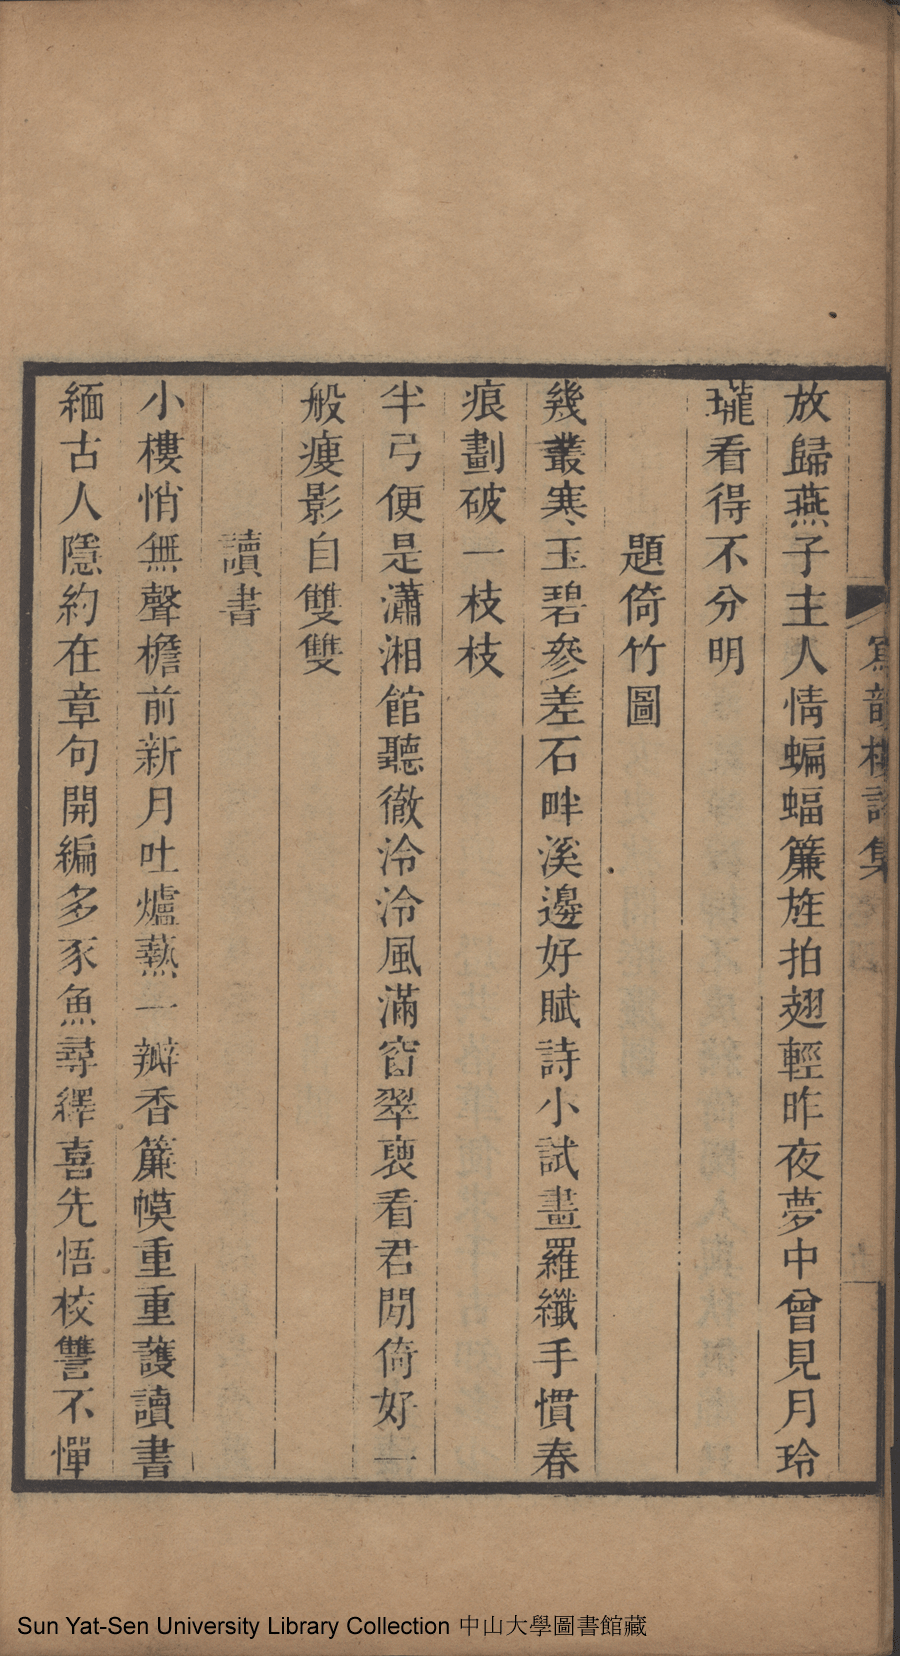 放歸燕子主人情蝙蝠簾旌拍翅輕昨夜夢中曾見月玲
瓏看得不分明
題倚竹圖
幾叢寒玉碧參差石畔溪邊好賦詩小試畫羅纖手慣春
痕劃破一枝枝
半弓便是瀟湘館聽徹泠泠風滿窗翠褏看君閒倚好一
般瘦影自雙雙
讀書
小樓悄無聲檐前新月吐爐爇一瓣香簾幙重重護讀書
緬古人隱約在章句開編多豕魚尋繹喜先悟校讐不憚
Sun Yat-Sen University Library Collection 中山大學圖書館藏